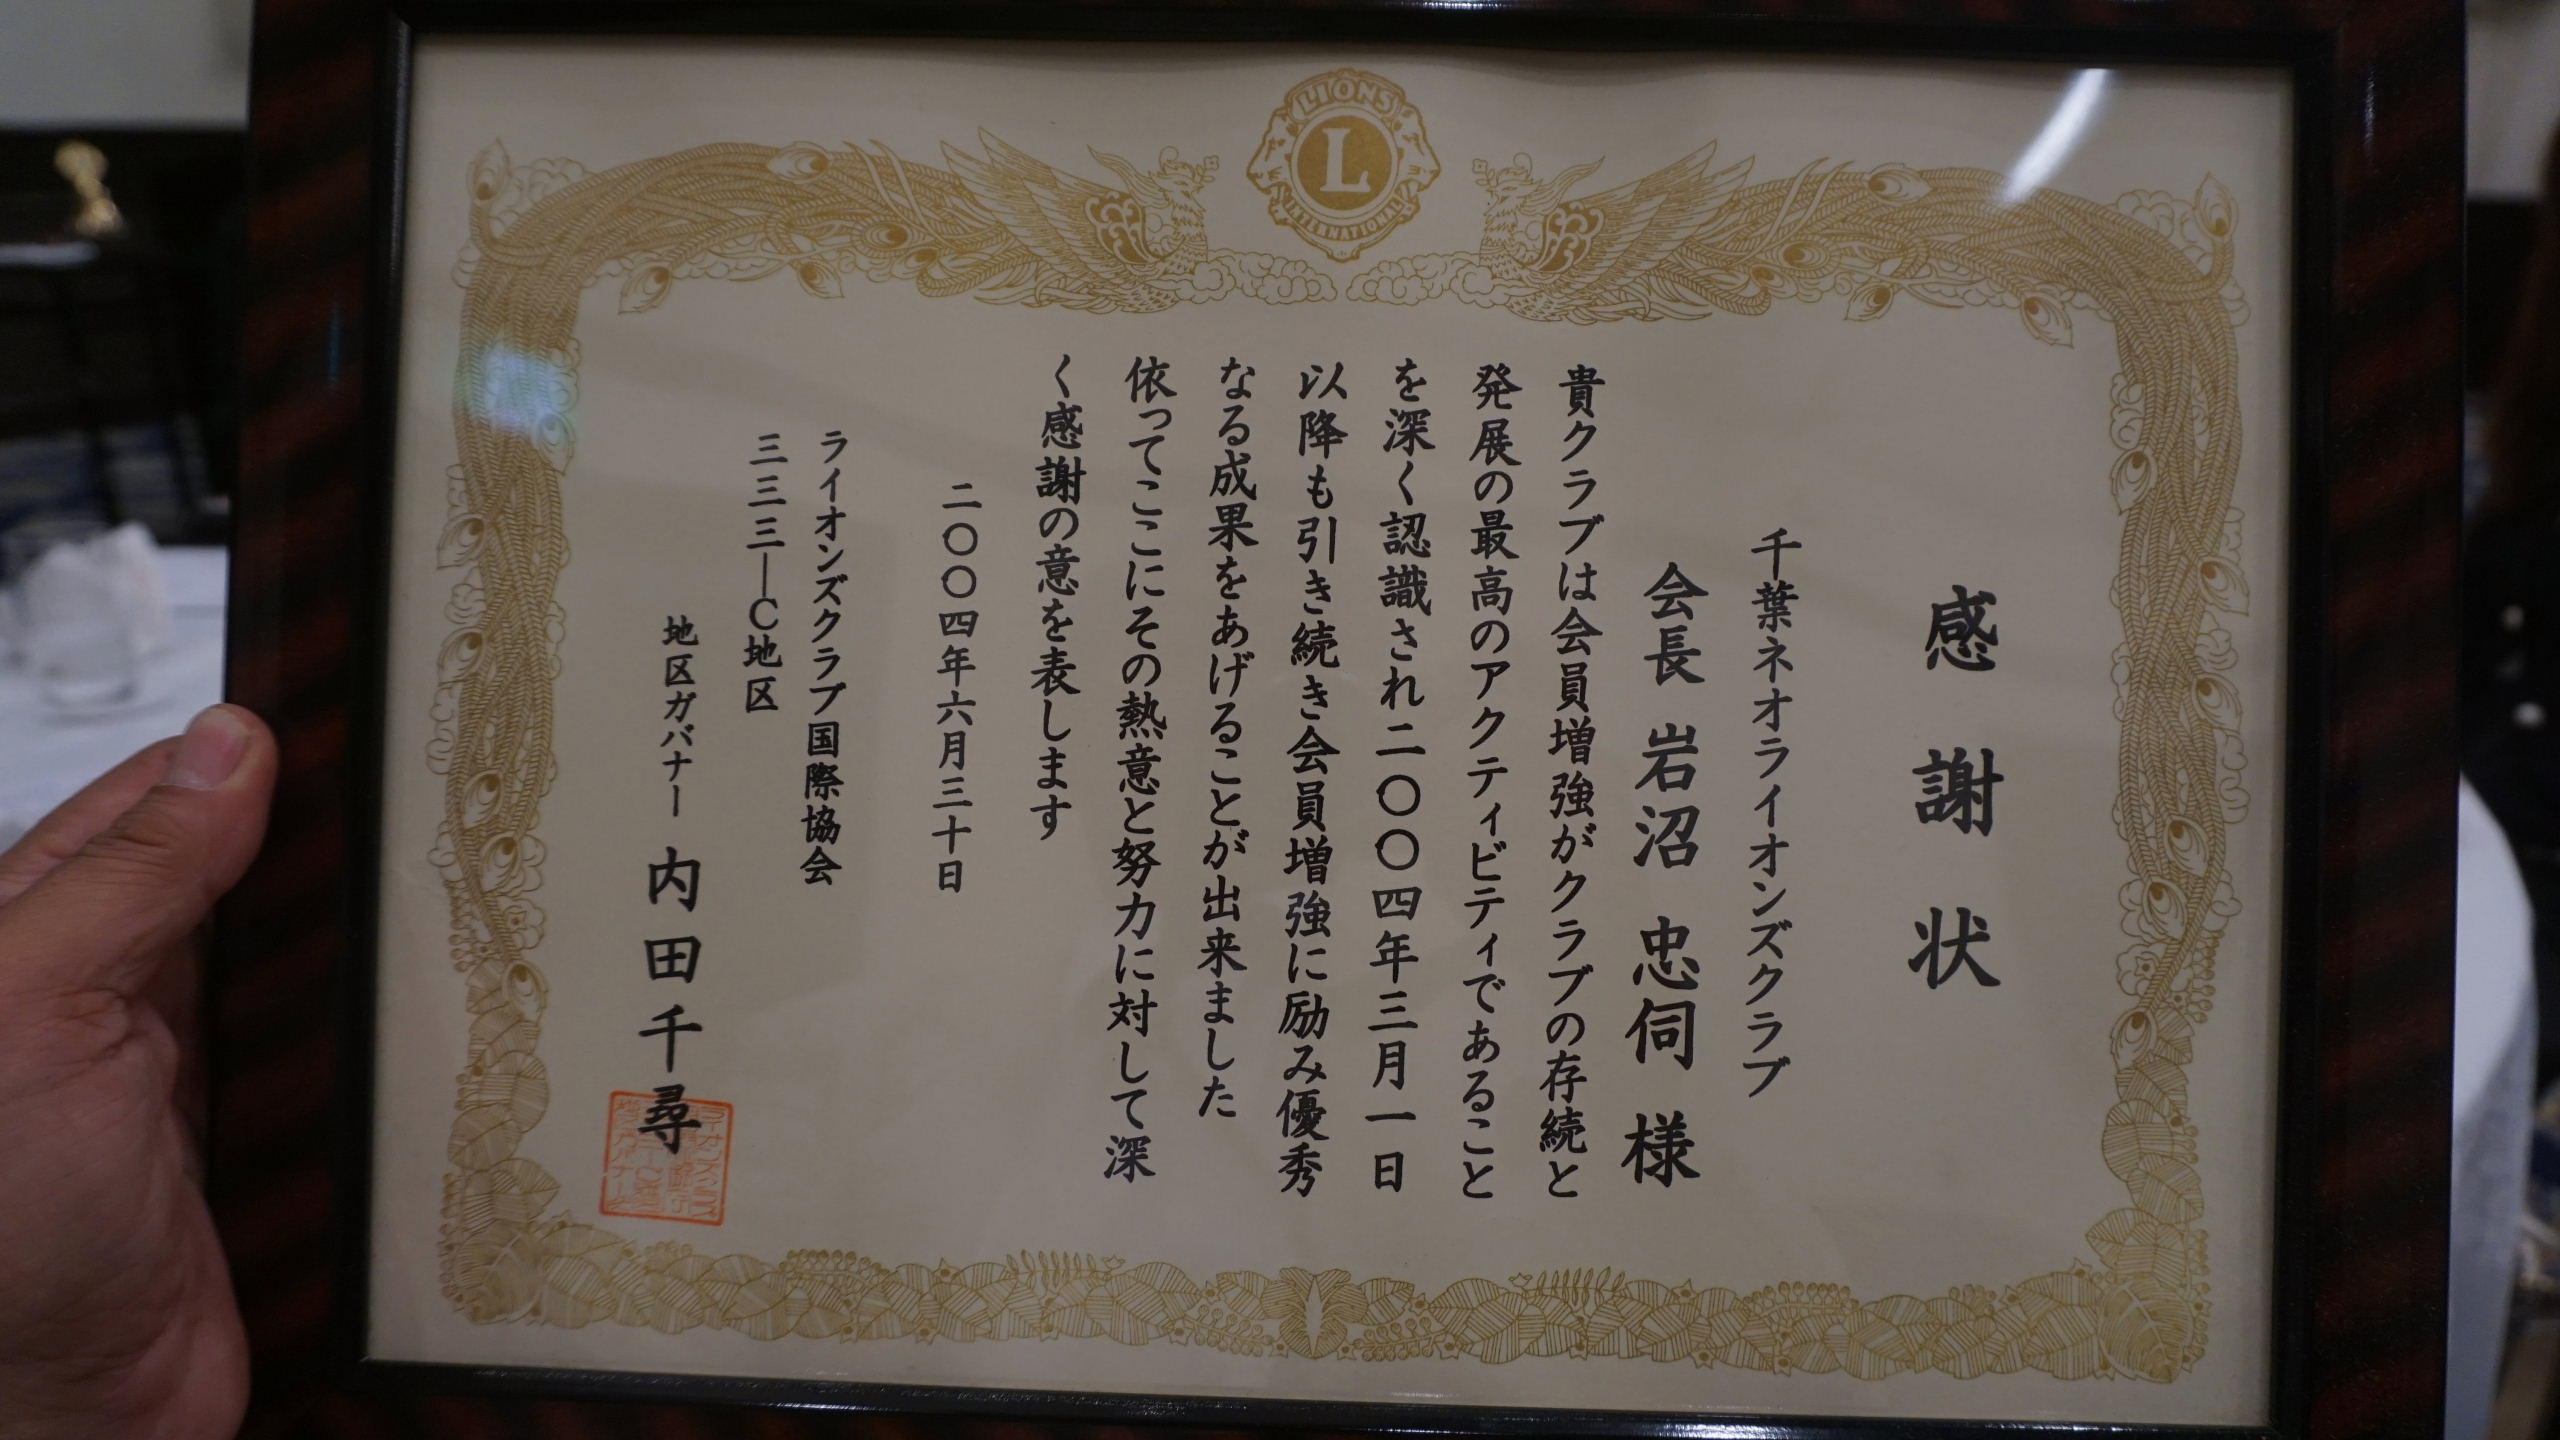 LIONS
L
INTERNATIONAL
感謝状
千葉ネオライオンズクラブ
会長 岩沼 忠伺 様
貴クラブは会員増強がクラブの存続と
発展の最高のアクティビティであること
を深く認識され二〇〇四年三月一日
以降も引き続き会員増強に励み優秀
なる成果をあげることが出来ました
依ってここにその熱意と努力に対して深
く感謝の意を表します
二〇〇四年六月三十日
ライオンズクラブ国際協会
三三三―C地区
地区ガバナー 内田千尋